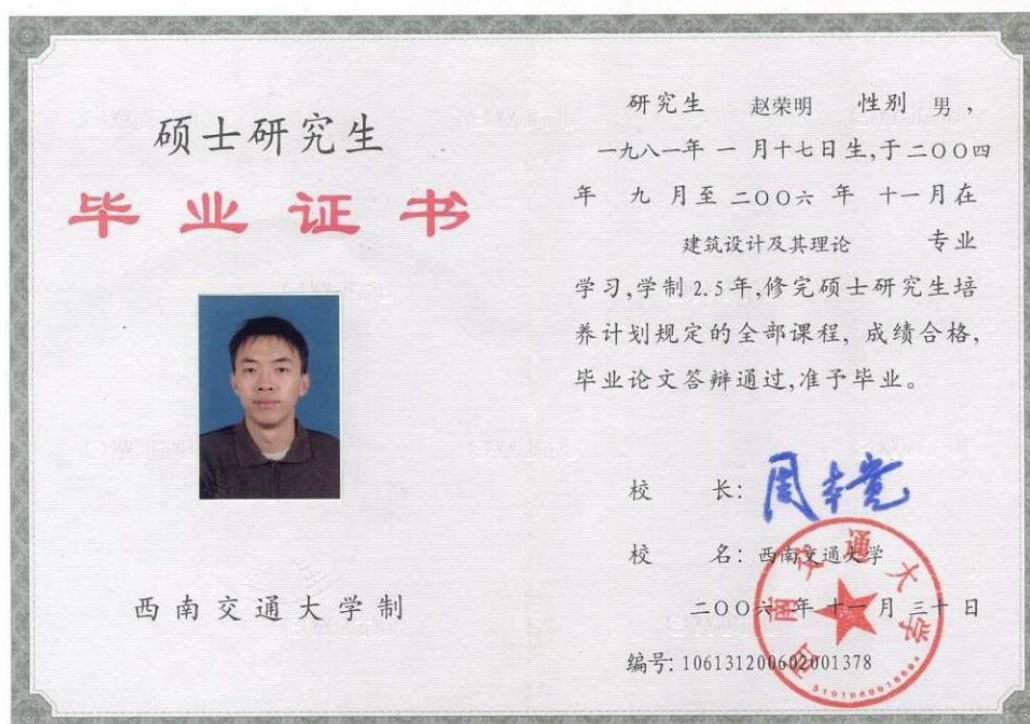 硕士研究生
毕业证书
西南交通大学制
研究生 赵荣明 性别 男，
一九八一年 一 月十七日生,于二〇〇四
年 九 月至 二〇〇六 年 十一月在
建筑设计及其理论 专业
学习,学制 2.5 年,修完硕士研究生培
养计划规定的全部课程, 成绩合格,
毕业论文答辩通过,准予毕业。
校 长:
校 名: 西南交通大学
二〇〇六 年 十一 月 三十 日
编号: 106131200602001378
西南交通大学